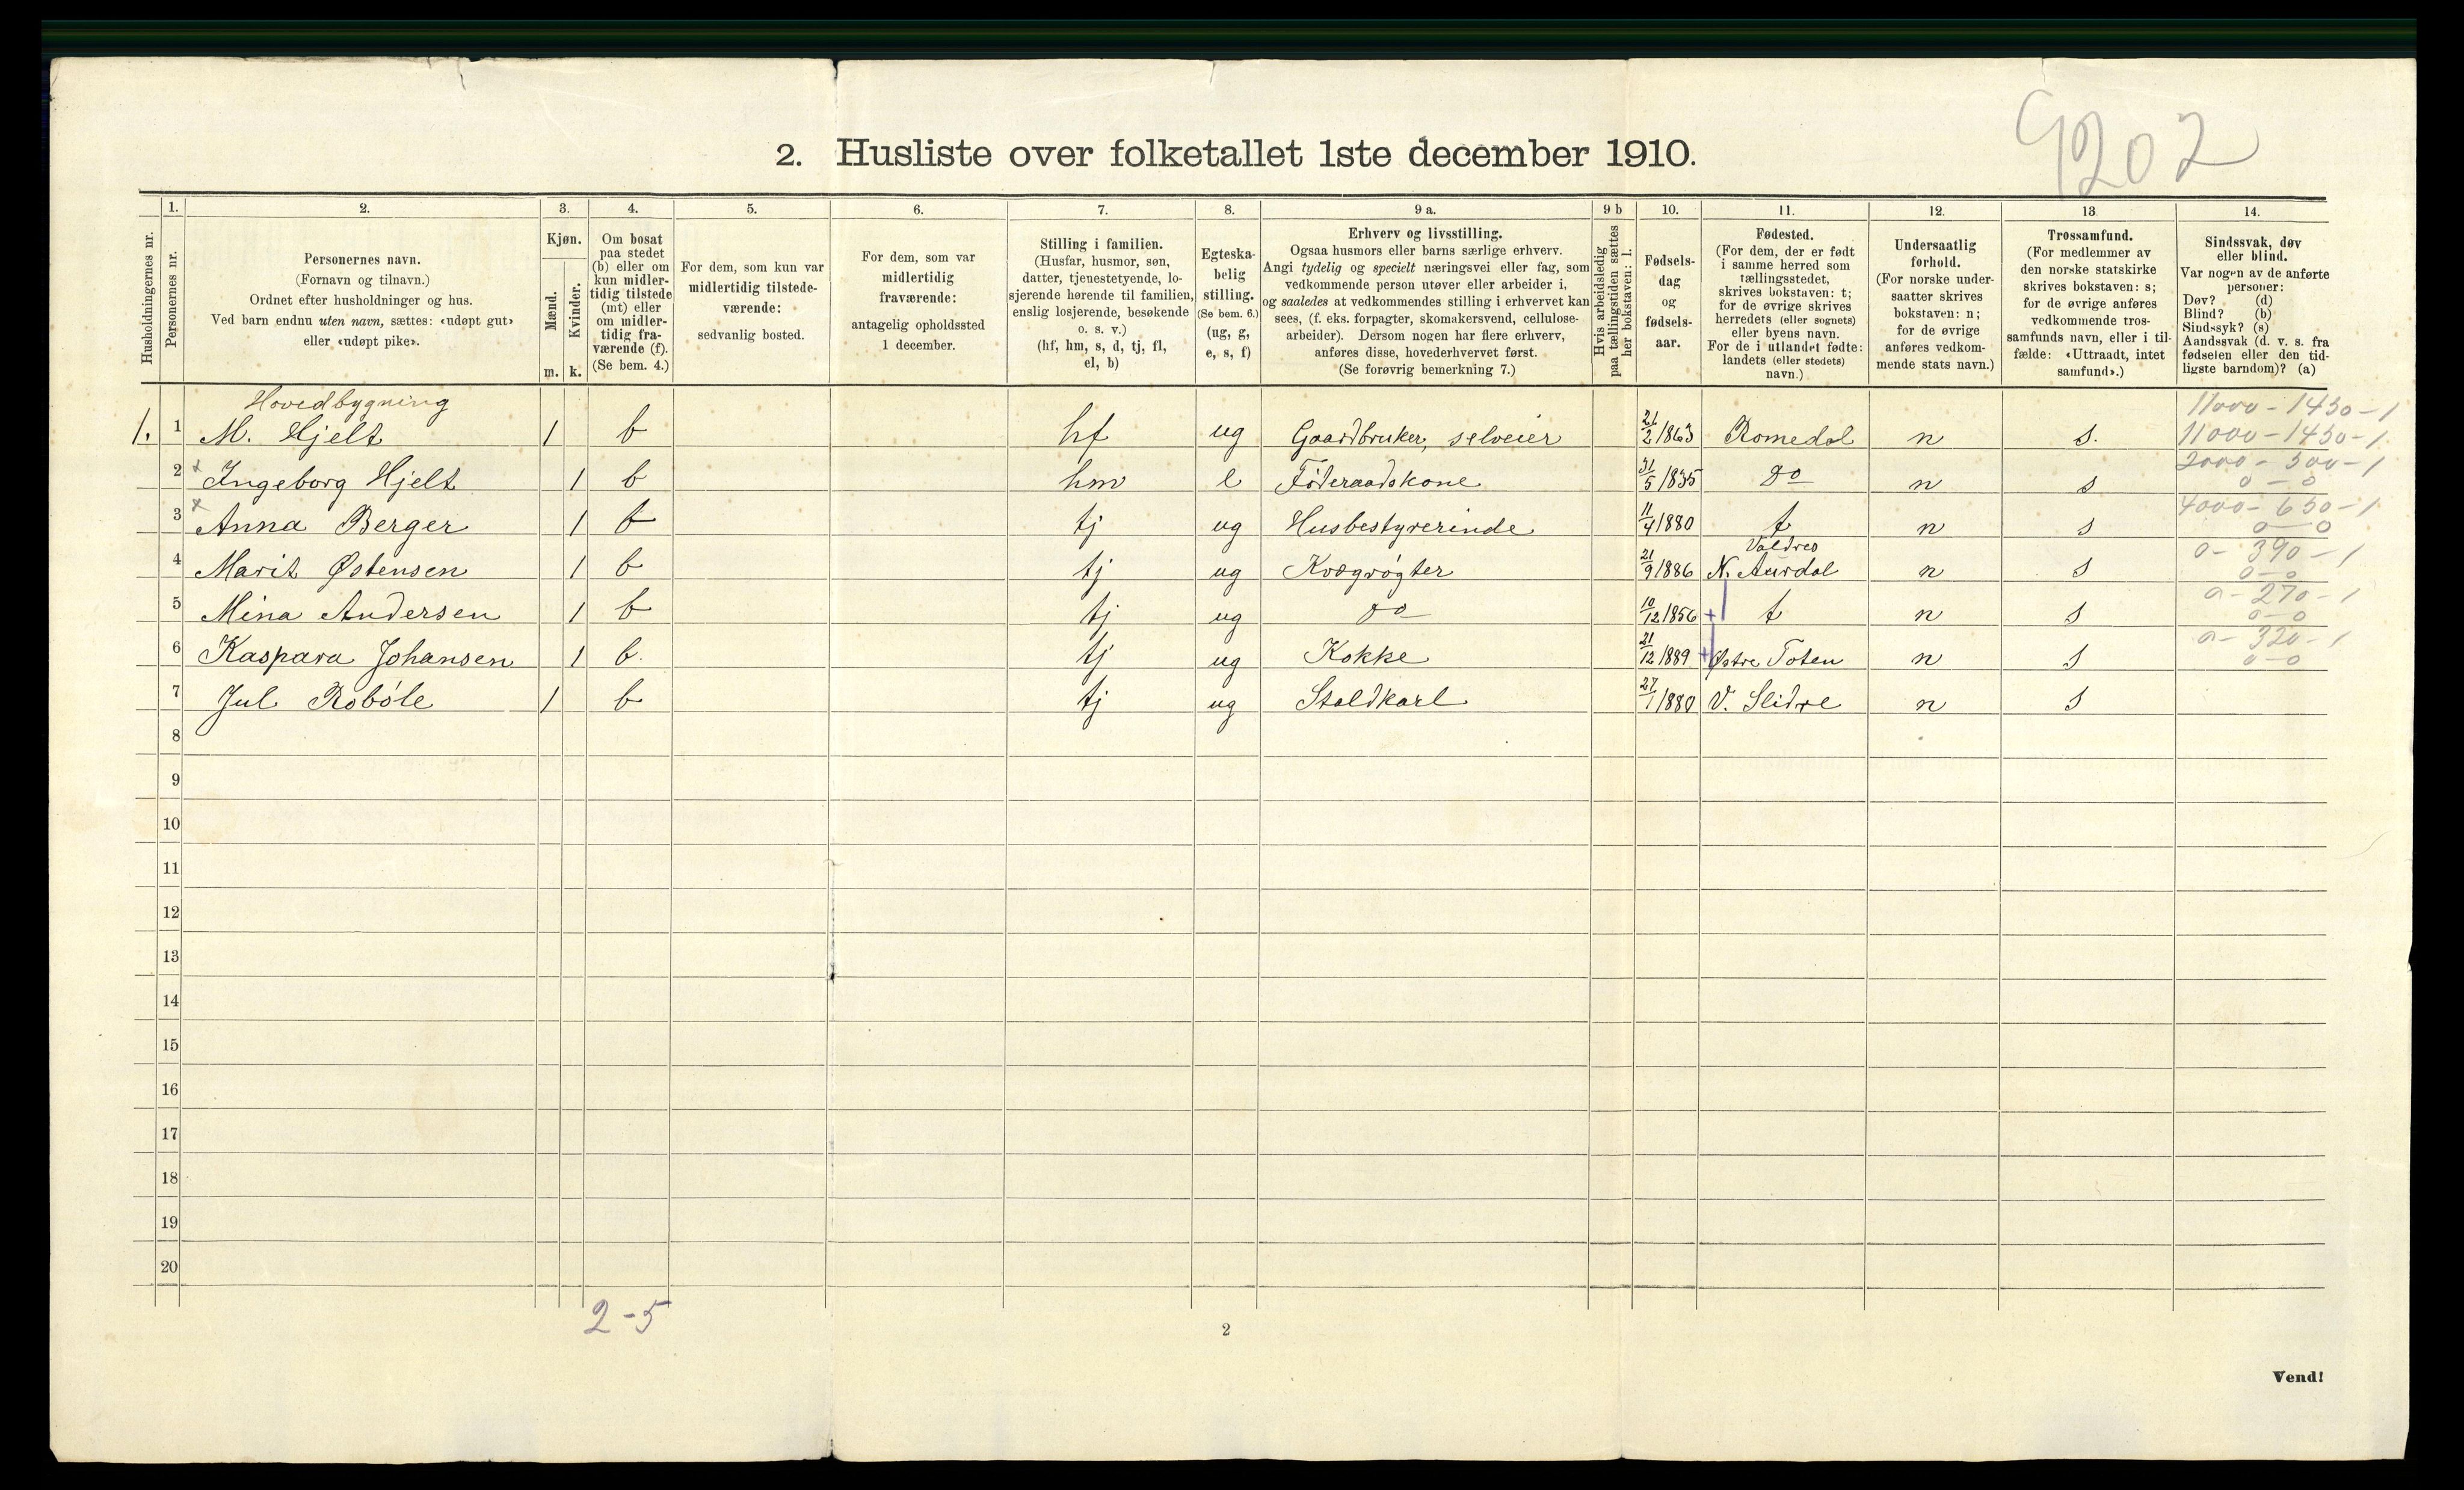 9202
2. Husliste over folketallet 1ste december 1910.
1. 2. 3. 4. 5. 6. 7. 8. 9 a. 9 b 10. 11. 12. 13. 14.
Husholdningernes nr.
Personernes nr.
Personernes navn.
(Fornavn og tilnavn.)
Ordnet efter husholdninger og hus.
Ved barn endnu uten navn, sættes: «udøpt gut»
eller «udøpt pike».
Kjøn.
Mænd.
Kvinder.
m. k.
Om bosat
paa stedet
(b) eller om
kun midler-
tidig tilstede
(mt) eller
om midler-
tidig fra-
værende (f).
(Se bem. 4.)
For dem, som kun var
midlertidig tilstede-
værende:
sedvanlig bosted.
For dem, som var
midlertidig
fraværende:
antagelig opholdssted
1 december.
Stilling i familien.
(Husfar, husmor, søn,
datter, tjenestetyende, lo-
sjerende hørende til familien,
enslig losjerende, besøkende
o. s. v.)
(hf, hm, s, d, tj, fl,
el, b)
Egteska-
belig
stilling.
(Se bem. 6.)
(ug, g,
e, s, f)
Erhverv og livsstilling.
Ogsaa husmors eller barns særlige erhverv.
Angi tydelig og specielt næringsvei eller fag, som
vedkommende person utøver eller arbeider i,
og saaledes at vedkommendes stilling i erhvervet kan
sees, (f. eks. forpagter, skomakersvend, cellulose-
arbeider). Dersom nogen har flere erhverv,
anføres disse, hovederhvervet først.
(Se forøvrig bemerkning 7.)
Hvis arbeidsledig
paa tællingstiden sættes
her bokstaven: l.
Fødsels-
dag
og
fødsels-
aar.
Fødested.
(For dem, der er født
i samme herred som
tællingsstedet,
skrives bokstaven: t;
for de øvrige skrives
herredets (eller sognets)
eller byens navn.
For de i utlandet fødte:
landets (eller stedets)
navn.)
Undersaatlig
forhold.
(For norske under-
saatter skrives
bokstaven: n;
for de øvrige
anføres vedkom-
mende stats navn.)
Trossamfund.
(For medlemmer av
den norske statskirke
skrives bokstaven: s;
for de øvrige anføres
vedkommende tros-
samfunds navn, eller i til-
fælde: «Uttraadt, intet
samfund».)
Sindssvak, døv
eller blind.
Var nogen av de anførte
personer:
Døv? (d)
Blind? (b)
Sindssyk? (s)
Aandssvak (d. v. s. fra
fødselen eller den tid-
ligste barndom)? (a)
Hovedbygning 11000-1430-1
1. 1 M. Hjelt 1 b hf ug Gaardbruker, selveier 21/2 1863 Romedal n s. 11000-1430-1
2000-300-1
2 x Ingeborg Hjelt 1 b hm e Føderaadskone 31/5 1835 do n s 0-0
4000-650-1
3 x Anna Berger 1 b tj ug Husbestyrerinde 11/4 1880 t n s 0-0
Valdres 0-390-1
4 Marit Østensen 1 b tj ug Kvægrøgter 21/9 1886 N. Aurdal n s 0-0
0-270-1
5 Mina Andersen 1 b tj ug do 10/12 1856 + t n s 0-0
0-320-1
6 Kaspara Johansen 1 b. tj ug Kokke 21/12 1889 + Østre Toten n s 0-0
7 Jul Robøle 1 b tj ug Staldkarl 27/1 1880 V. Slidre n s
8
9
10
11
12
13
14
15
16
17
18
19
20
2-5
2
Vend!